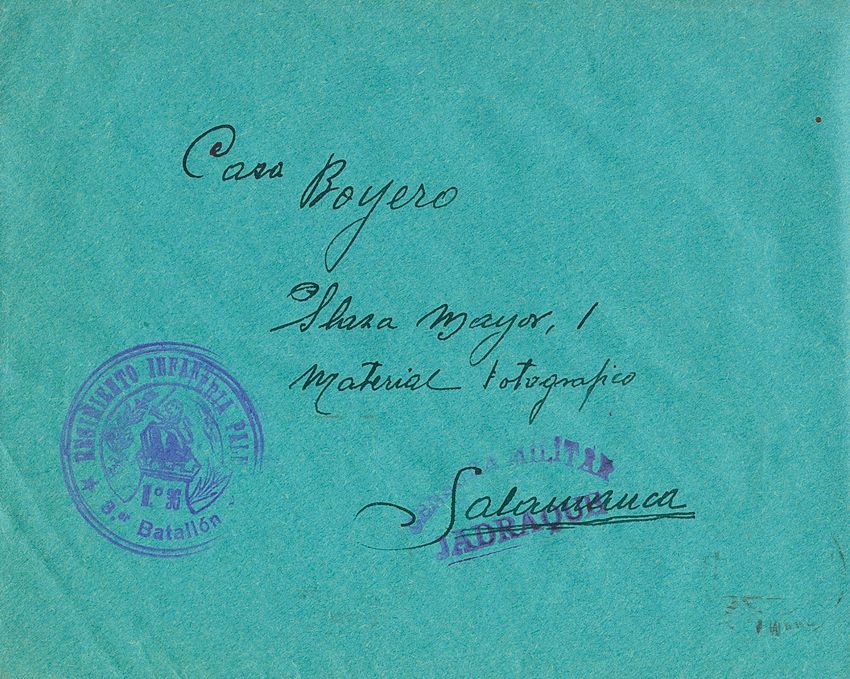 Casa Boyero
Plaza Mayor, 1
Material Fotografico
Salamanca
REGIMIENTO INFANTERIA
N.º 36
8.º Batallón
CENSURA MILITAR
JADRAQUE